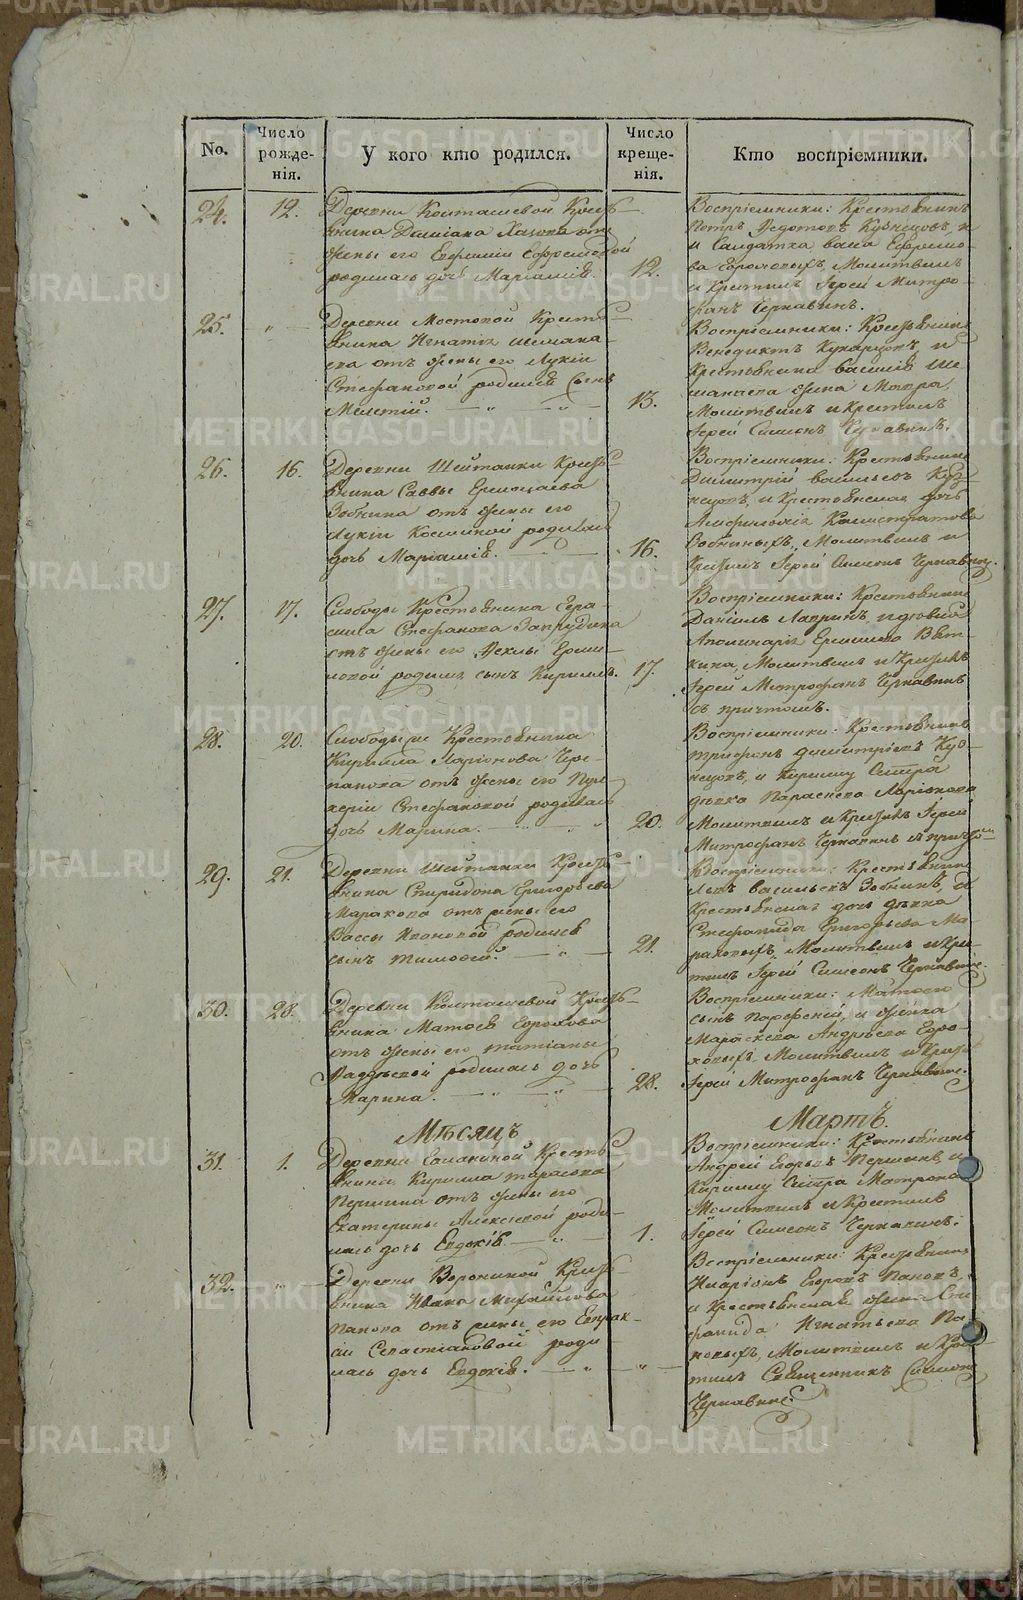 No.
Число рожде-нія.
У кого кто родился.
Число креще-нія.
Кто воспріемники.
24.
12.
Деревни Конташевой Кресть-
янина Даміана Хахова отъ
жены его Евфиміи Ефремовой
родилась дочь Маріамія.
12.
Воспріемники: Крестьянинъ
Петръ Федотовъ Кузнецовъ, и
и Салдатка васса Ефремо-
ва Молитвилъ
и Крестилъ Іерей Митро-
фанъ Чернавинъ.
25.
„
Деревни Мостовой Кресть-
янина Игнатія Шемана-
ева отъ жены его Лукіи
Стефановой родился сынъ
Мелетій.
13.
Воспріемники: Крестьянинъ
Венедиктъ Кукарцовъ, и
Крестьянина василія Ше-
манаева жена Мавра,
Молитвилъ и Крестилъ
Іерей Симеонъ Чернавинъ.
26.
16.
Деревни Шейтанки Кресть-
янина Саввы Ермолаева
Зобнина отъ жены его
Лукіи Косминой родилась
дочь Маріамія.
16.
Воспріемники: Крестьянинъ
Димитрій васильевъ Куз-
нецовъ, и Крестьянская дочь
Калистратова
Зобниныхъ, Молитвилъ и
Крестилъ Іерей Симеонъ Чернавинъ.
27.
17.
Слободы Крестьянина Гера-
сима Стефанова Запрудина
отъ жены его Феклы Ерми-
ловой родился сынъ Кириллъ.
17.
Воспріемники: Крестьянинъ
Даніилъ Лавринъ, и вдова
Апалинарія Ермилова Вят-
кина, Молитвилъ и Крестилъ
Іерей Митрофанъ Чернавинъ
съ причтомъ.
28.
20.
Слободы Крестьянина
Кирилла Ларіонова Чере-
панова отъ жены его Пул-
херіи Стефановой родилась
дочь Марина.
20.
Воспріемники: Крестьянинъ
трифонъ димитріевъ Куз-
нецовъ, и Кириллу Сестра
девка Параскева Ларіонова
Молитвилъ и Крестилъ Іерей
Митрофанъ Чернавинъ съ причтом
29.
21.
Деревни Шейтанки Кресть-
янина Спиридона Григорьева
Маракова отъ жены его
Вассы Ивановой родился
сынъ тимофей.
21.
Воспріемники: Крестьянинъ
Левъ васильевъ Зобнинъ, и
Крестьянская дочь девка
Стефанида Григорьева Ма-
раковыхъ, Молитвилъ и Кре-
тилъ Іерей Симеонъ Чернавинъ.
30.
28.
Деревни Конташевой Кресть-
янина Матвея Ефронова
отъ жены его татіаны
Фаддеевой родилась дочь
Марина.
28.
Воспріемники: Матвею
сынъ Парфеній, и жена
Параскева Андреева
Молитвилъ и Крест
Іерей Митрофанъ Чернавинъ.
Мѣсяцъ
Мартъ.
31.
1.
Деревни Ералкиной Кресть-
янина Кирилла тарасова
Першина отъ жены его
Екатерины Алексеевой роди-
лась дочь Евдокія.
1.
Воспріемники: Крестьянинъ
Андрей Егоровъ Першинъ, и
Кириллу Сестра Матрона
Молитвилъ и Крестилъ
Іерей Симеонъ Чернавинъ.
32.
„
Деревни Ворониной Кресть-
янина Ивана Михайлова
Панова отъ жены его Евпрак-
сіи Севастіановой роди
лась дочь Евдокія.
„
Воспріемники: Крестьянинъ
Иларіонъ Егоровъ Пановъ,
и Крестьянская жена Сте
фанида Игнатьева Па-
новыхъ, Молитвилъ и Крес
тилъ Священникъ Симеонъ
Чернавинъ.
METRIKI.GASO-URAL.RU